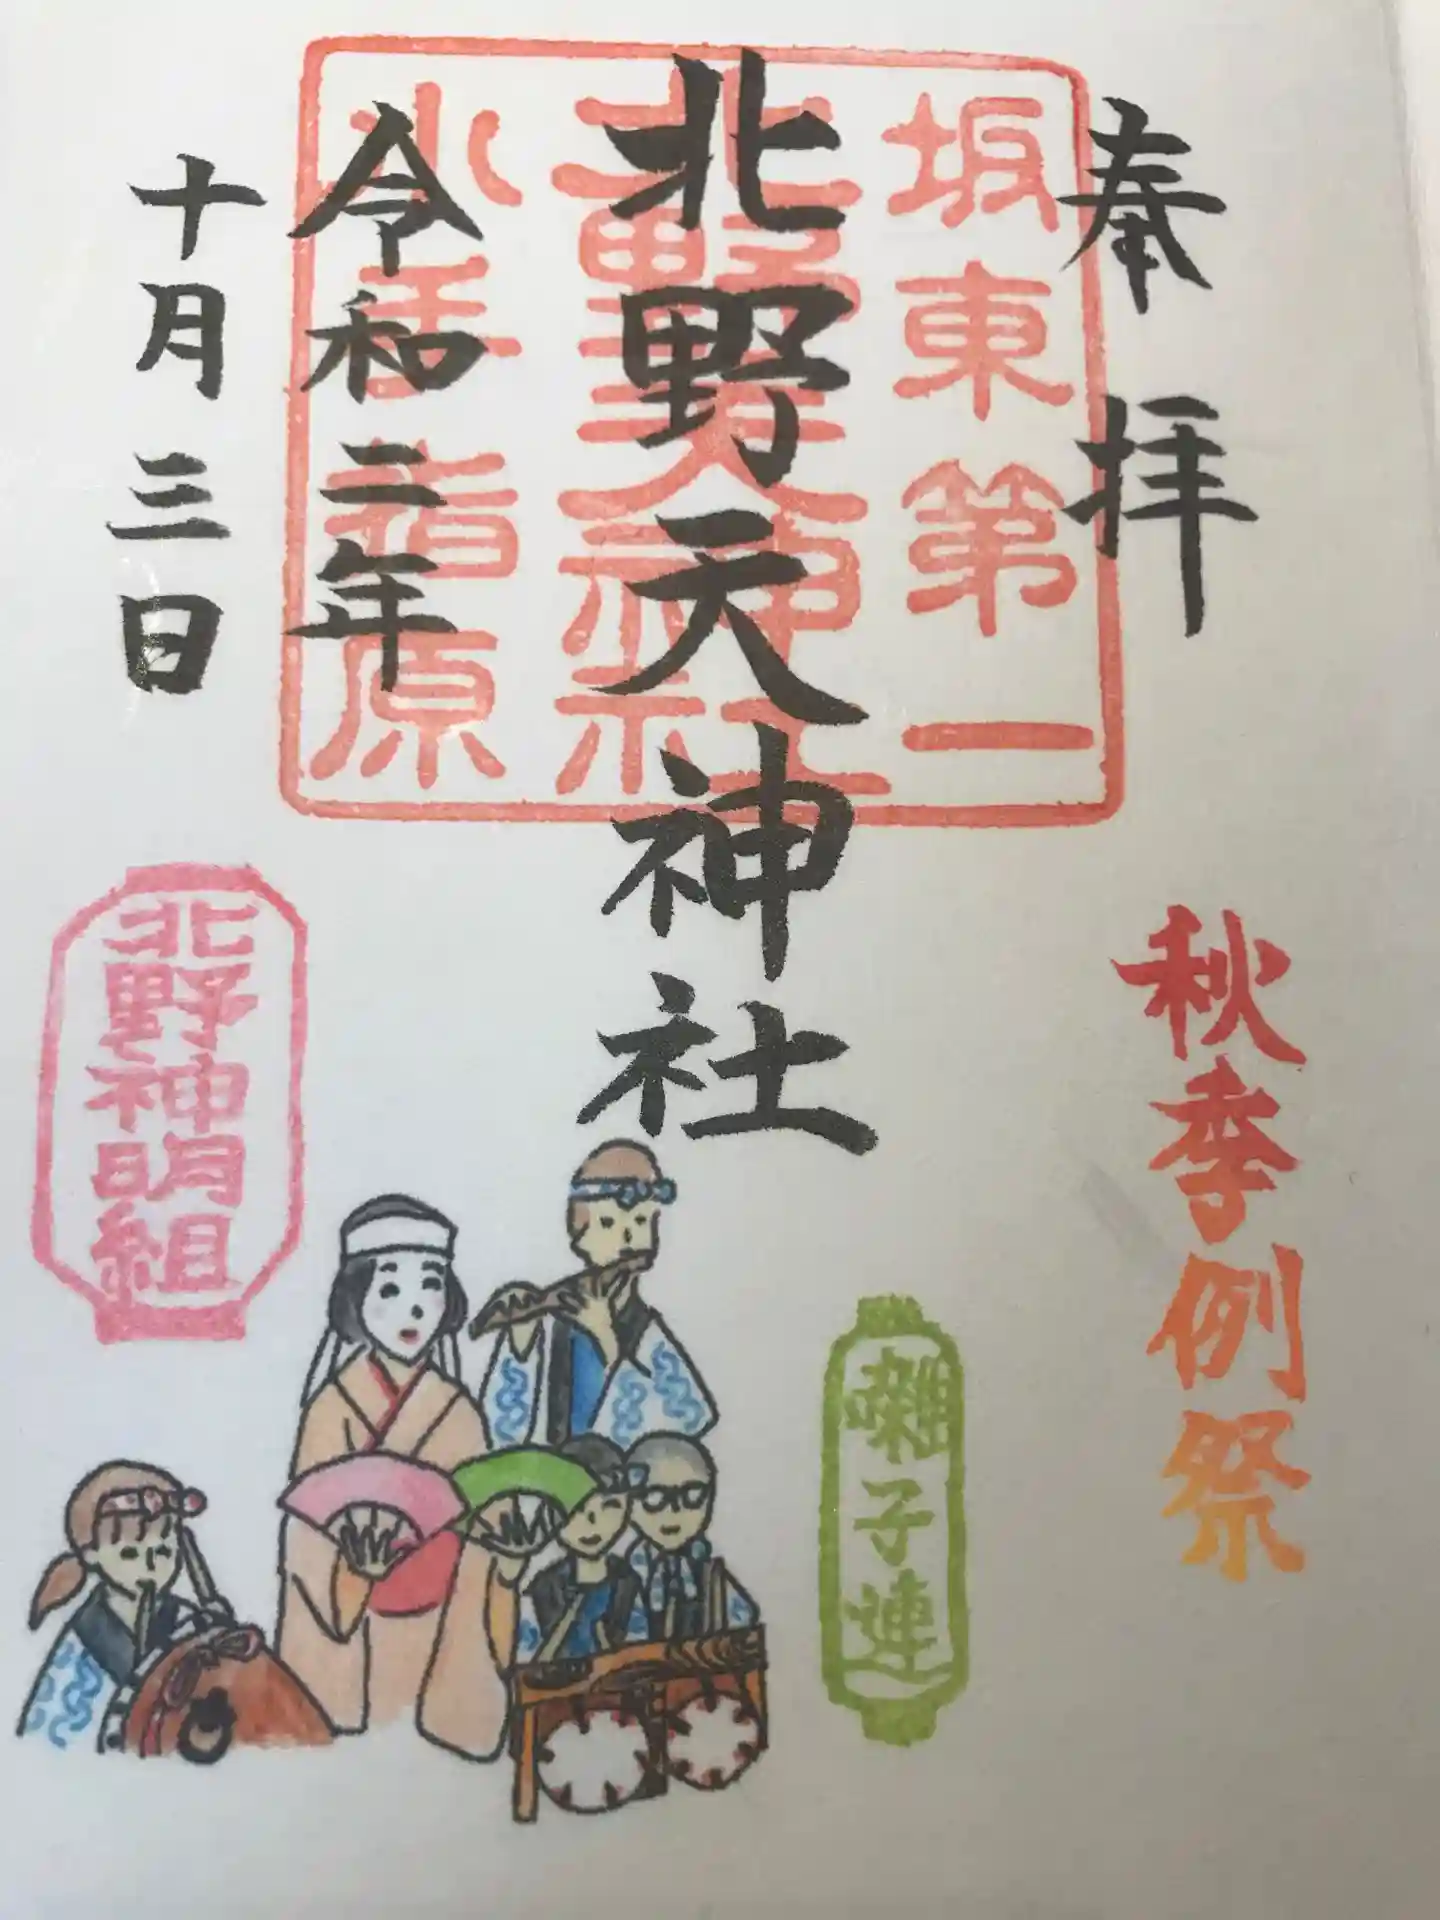 奉拝
坂東第一
北野天神社
北野天神社
令和二年
十月三日
秋季例祭
囃子連
北野神明組